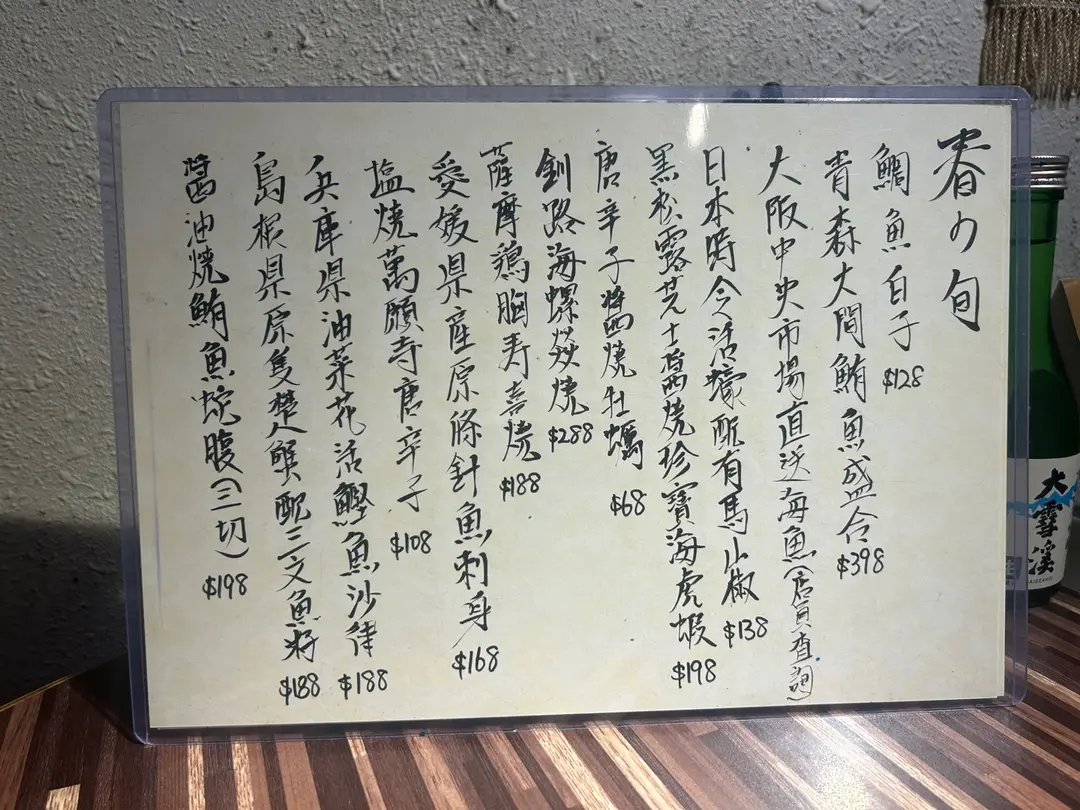 春の旬
鯛魚白子 $128
青森大間鮪魚盛合 $398
大阪中央市場直送海魚(店員查詢)
日本時令活蠔配有馬山椒 $138
黑松露芝士醬燒珍寶海虎蝦 $198
唐辛子醬燒牡蠣 $68
釧路海螺燚燒 $288
薩摩鶏胸寿喜燒 $188
愛媛県産原條針魚刺身 $168
塩燒萬願寺唐辛子 $108
兵庫県油菜花活鰹魚沙律 $188
島根県原隻楚蟹配三文魚籽
醬油燒鮪魚蛇腹(三切) $198
大雪渓